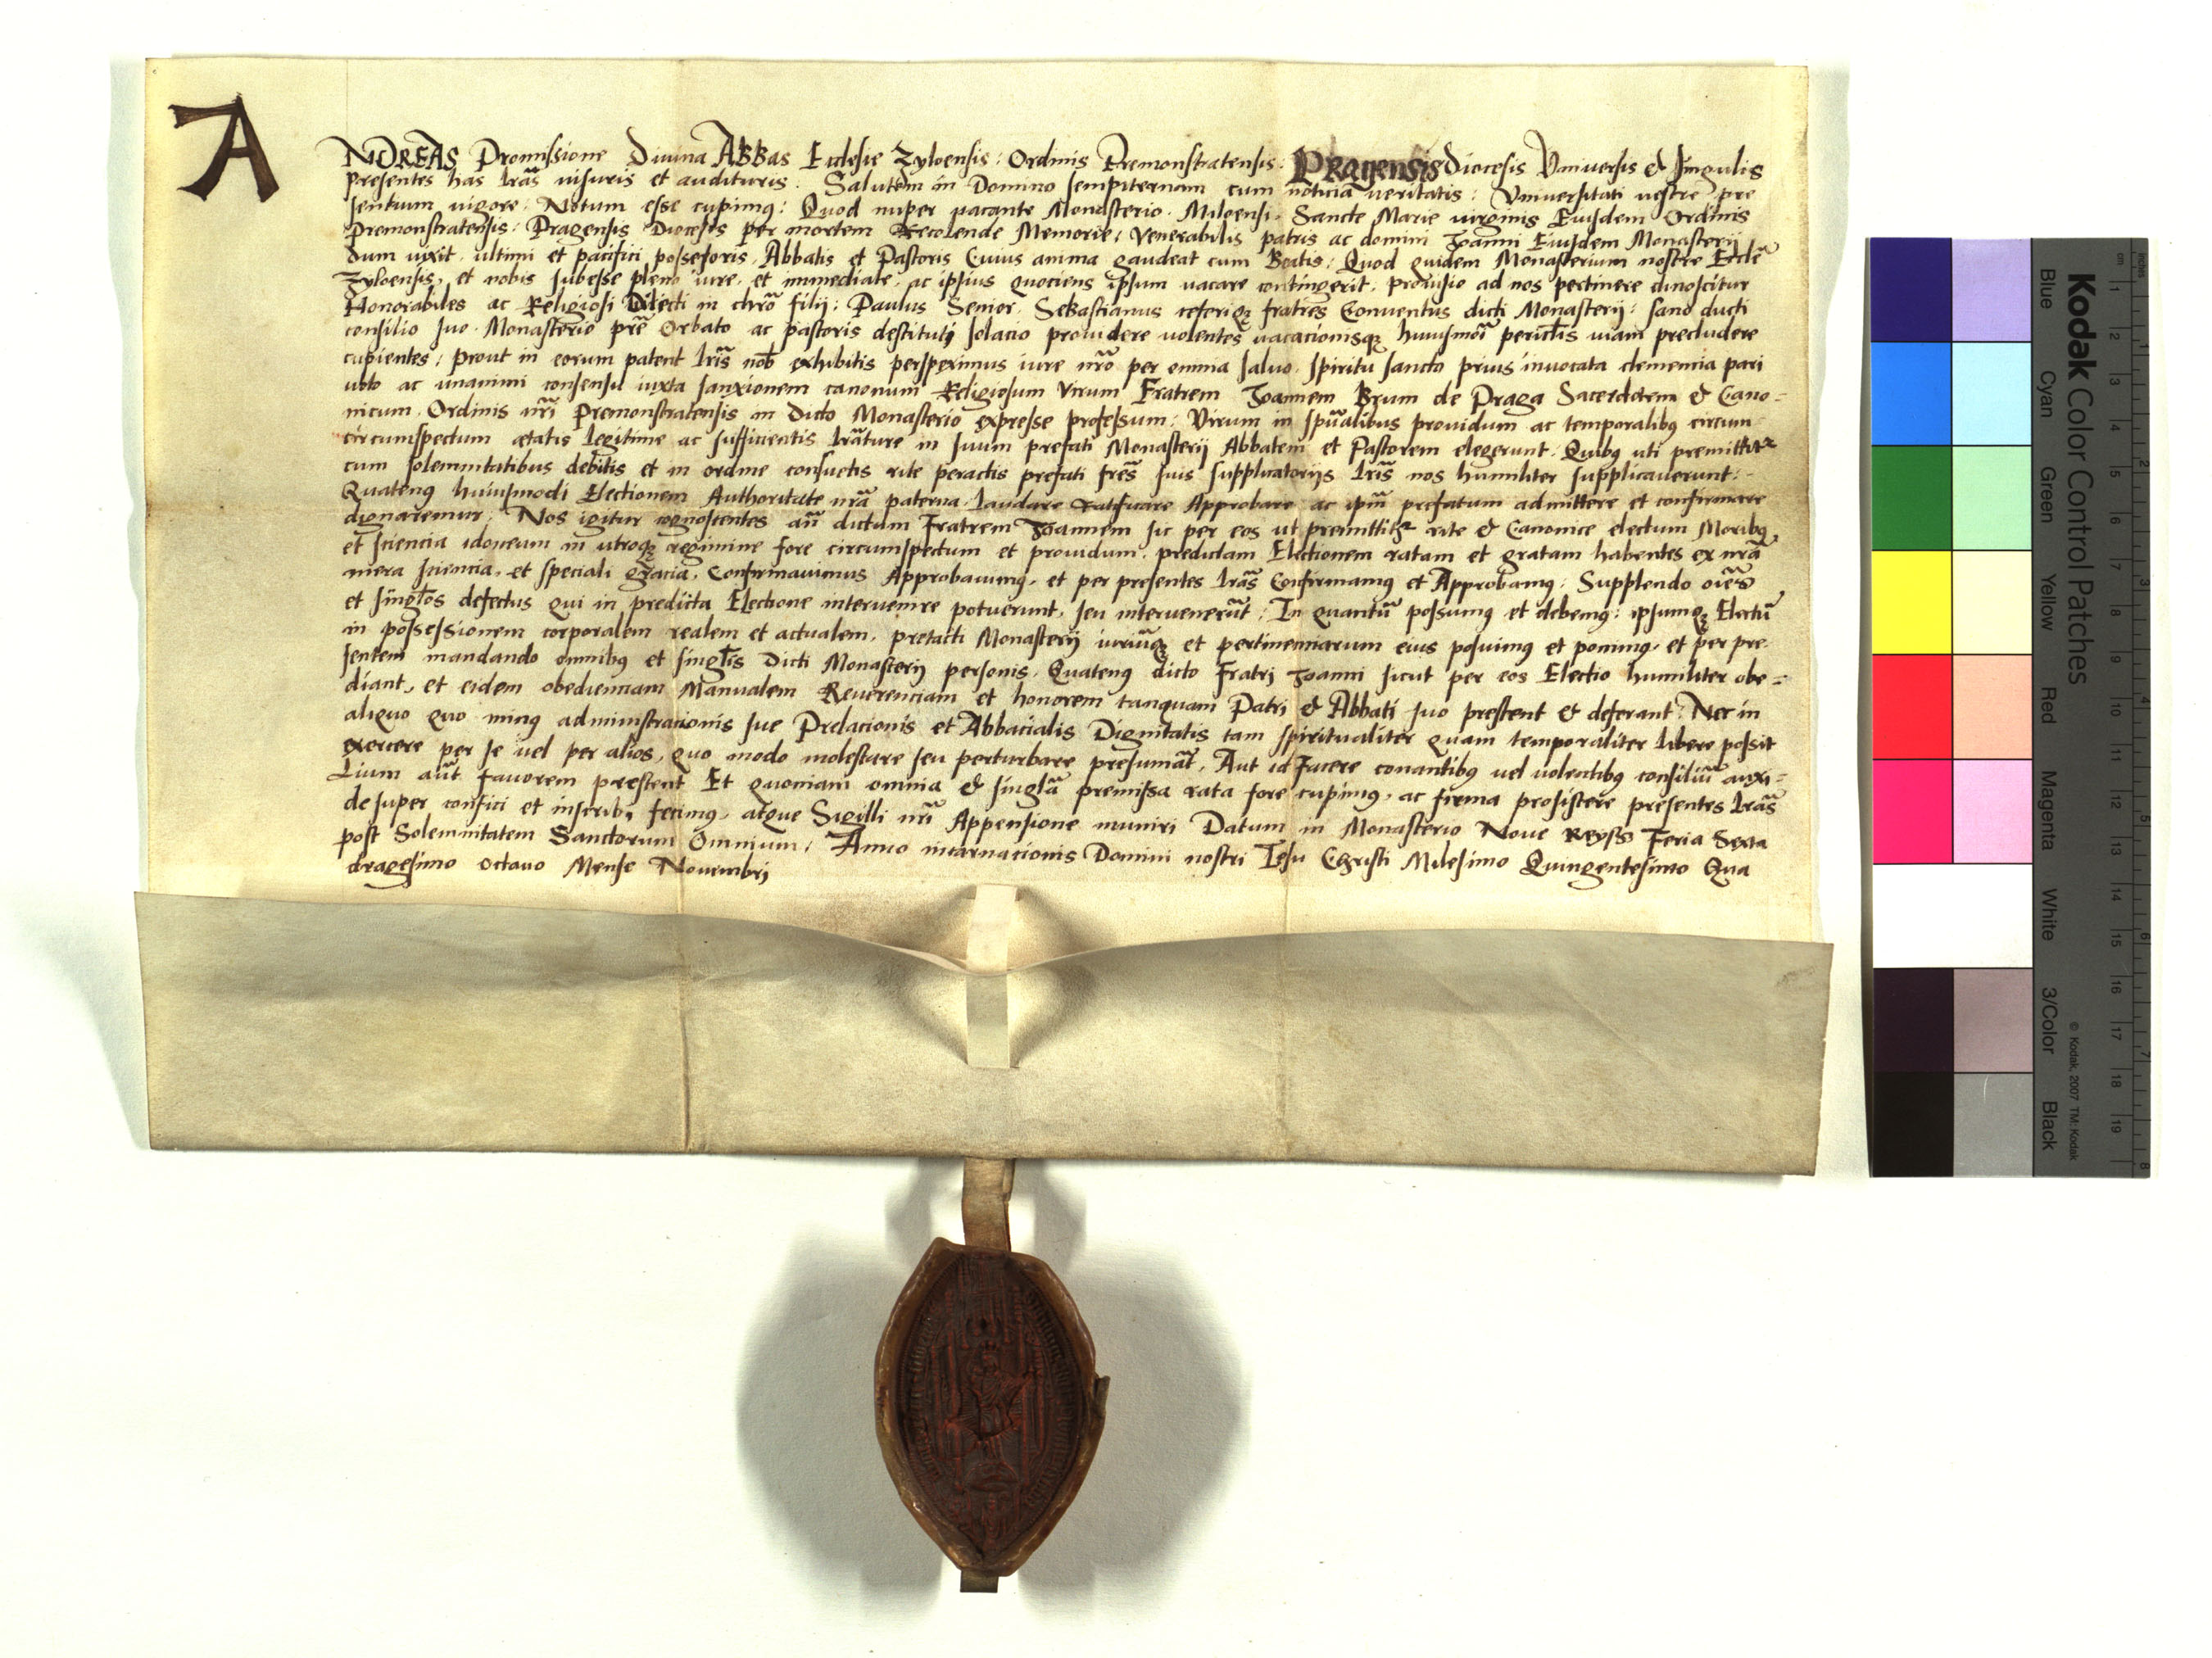 ANDREAS Promissione Divina ABBas Ecclesie Zyloensis: Ordinis Premonstratensis: Pragensis Diocesis Vniuersis & singulis
presentes has lrãs uisuris et audituris. Salutem in Domino sempiternam cum noticia veritatis: Vniuersitati vestre pre
sentium uigore. Notum esse cupimꝰ: Quod nuper uacante Monasterio. Miloensi. Sancte Marie uirginis Eiusdem Ordinis
Premonstratensis: Pragensis Diocesis per mortem Recolende Memorie: Venerabilis patris ac domini Joanni Eiusdem Monasterij
dum uixit. ultimi et pacifici possesoris. Abbatis et Pastoris Cuius anima gaudeat cum Beatis: Quod quidem Monasterium nostre Eccle͂
Zyloensis, et nobis subesse pleno iure. et immediate. ac ipsius quociens ipsum uacare contingerit. prouisio ad nos pertinere dinoscitur
Honorabiles ac Religiosi Dilecti in chrõ filij: Paulus Senior. Sebastianus ceteriqꝫ fratres Conuentus dicti Monasterij: sano ducti
consilio suo. Monasterio prẽ Orbato ac pastoris destituti solacio prouidere uolentes uacacionisqꝫ huiusmõi periclis uiam precludere
cupientes: prout in eorum patent lrĩs nob exhibitis perspeximus iure nr̃o per omnia saluo. spiritu sancto prius inuocata clementia pari
uoto ac unanimi consensu iuxta sanxionem canonum Religiosum Virum Fratrem Joannem Brum de Praga Sacerdotem & Cano=
nicum. Ordinis nr̃i Premonstratensis in dicto Monasterio expresse professum: Virum in spũalibus prouidum ac temporalibꝰ circum
circumspectum ætatis legitime ac sufficientis lrãture in suum prefati Monasterij Abbatem et Pastorem elegerunt. Quibꝰ uti premittitᷣ
cum solemnitatibus debitis et in ordine consuetis rite peractis prefati frẽs suis supplicatorijs lrĩs nos humiliter supplicauerunt:
Quatenꝰ huiusmodi Electionem Authoritate nr̃a paterna. laudare ratificare Approbare ac ipm̃ prefatum admittere et confirmare
dignaremur: Nos igitur cognoscentes añ dictum Fratrem Joannem sic per eos ut premittitᷣ rite & Canonice electum Moribꝰ,
et sciencia idoneum in utroqꝫ regimine fore circumspectum et prouidum. predictam Electionem ratam et gratam habentes ex nr̃a
mera sciencia, et speciali gracia. Confirmauimus Approbauimꝰ. et per presentes lrãs Confirmamꝰ et Approbamꝰ: Supplendo oẽs
et singlos defectus qui in predicta Electione interuenire potuerunt, seu interuenerũt: In quantũ possumꝰ et debemꝰ: ipsumqꝫ Electũ
in possessionem corporalem realem et actualem, pretacti Monasterij iuriũqꝫ et pertinenciarum eius posuimꝰ et ponimꝰ, et per pre
sentem mandando omnibꝰ et singlis Dicti Monasterij personis. Quatenꝰ dicto Fratri Joanni sicut per eos Electio humiliter obe=
diant, et eidem obedienciam Manualem Reuerenciam et honorem tanquam Patri & Abbati suo prestent & deferant: Nec in
aliquo quo minꝰ administracionis sue Prelacionis et Abbacialis Dignitatis tam spiritualiter quam temporaliter libere possit
exercere per se uel per alios, quo modo molestare seu perturbare presumãt, Aut id facere conantibꝰ uel uolentibꝰ consiliũ auxi=
lium aũt fauorem præstent Et quoniam omnia & singlã premissa rata fore cupimꝰ, ac firma prosistere presentes lrãs
desuper confici et inscribi, fecimꝰ, atque Sigilli nr̃i Appensione muniri Datum in Monasterio Noue Reyss Feria Sexta
post Solemnitatem Sanctorum Omnium: Anno incarnacionis Domini nostri Iesu Christi Milesimo Quingentesimo Qua
dragesimo octauo Mense Nouembrj
Kodak Color Control Patches
© Kodak, 2007 TM: Kodak
Blue Cyan Green Yellow Red Magenta White 3/Color Black
inches 1 2 3 4 5 6 7 8
cm 1 2 3 4 5 6 7 8 9 10 11 12 13 14 15 16 17 18 19